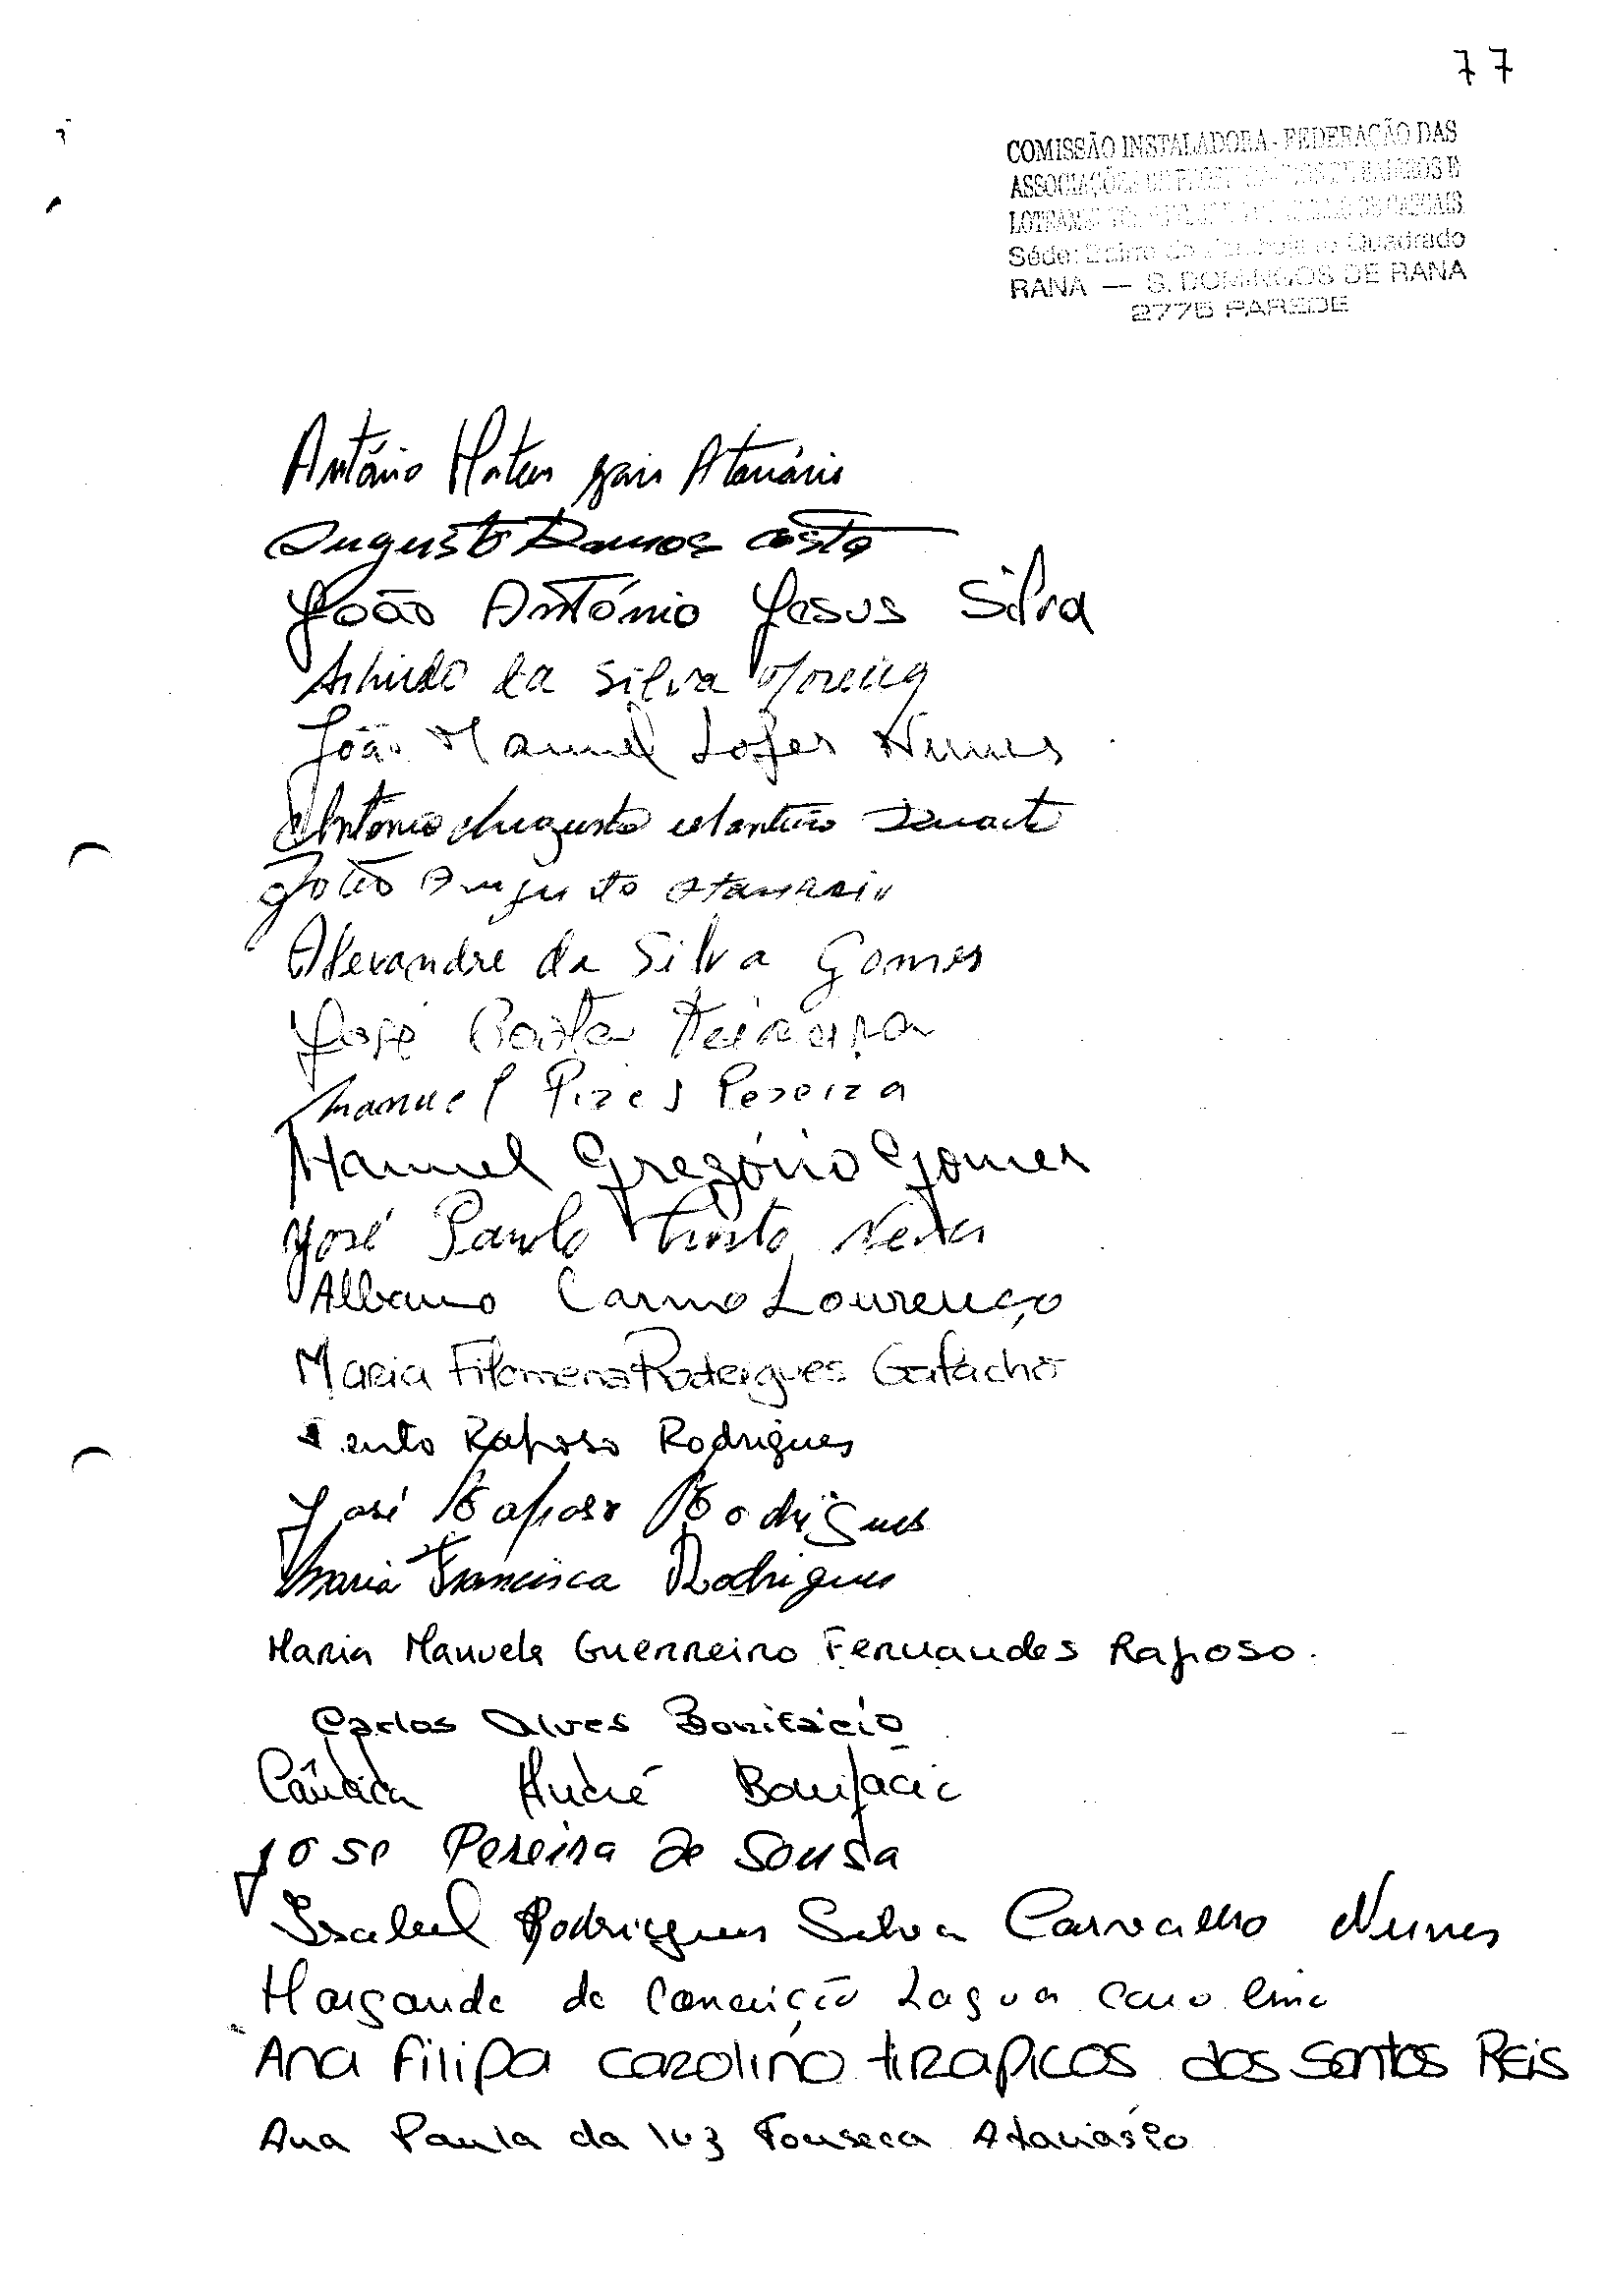 77
COMISSÃO INSTALADORA - FEDERAÇÃO DAS
ASSOCIAÇÕES DE BAIRROS E
DE CASCAIS
Séde: Bairro Quadrado
RANA — S. DOMINGOS DE RANA
2775 PAREDE
António Atanásio
Augusto Ramos Costa
João António Jesus Silva
da Silva Moreira
João Manuel Lopes Nunes
António Augusto Monteiro Duarte
João Augusto Atanasio
Alexandre da Silva Gomes
José Costa Teixeira
Manuel Pires Pereira
Manuel Gregório Gomes
José Paulo Neves
Albano Carmo Lourenço
Maria Filomena Rodrigues Gafacho
Bento Raposo Rodrigues
José Raposo Rodrigues
Maria Francisca Rodrigues
Maria Manuela Guerreiro Fernandes Raposo.
Carlos Alves Bonifácio
Cândida André Bonifácio
José Pereira de Sousa
Isabel Rodrigues Silva Carvalho Nunes
Margarida da Conceição Lagoa Carolino
Ana Filipa Carolino Tirapicos dos Santos Reis
Ana Paula da luz Fonseca Atanásio